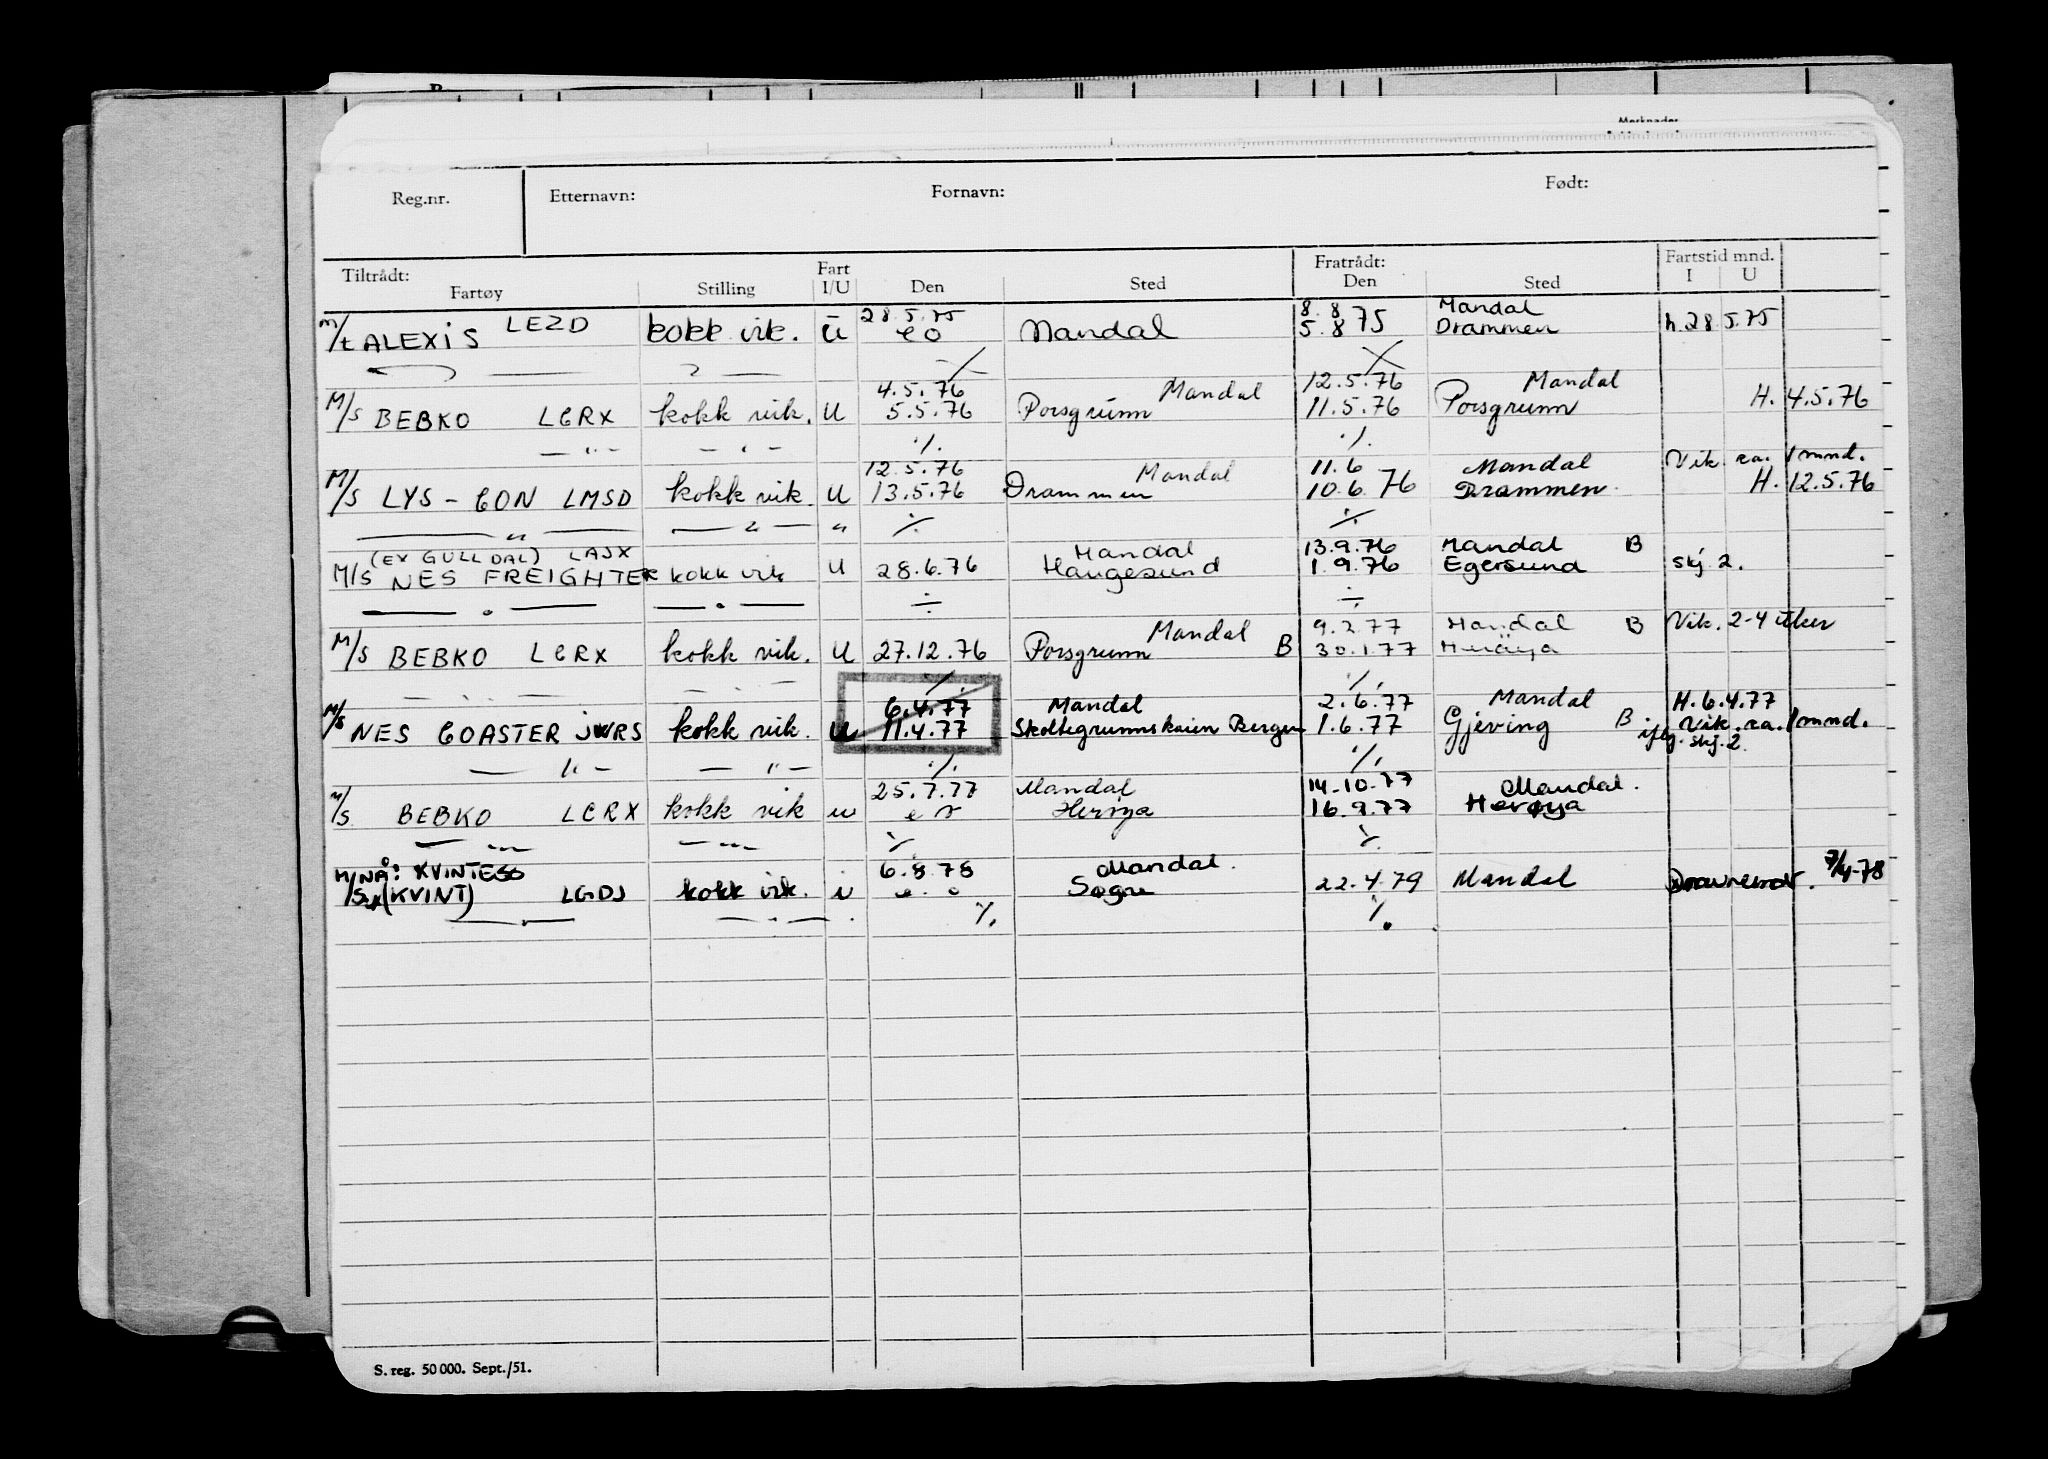 Merknader
Reg.nr. Etternavn: Fornavn: Født:
Tiltrådt: Fartøy Stilling Fart I/U Den Sted Fratrådt: Den Sted Fartstid mnd. I U
LEZD 28.5.75 8.8 Mandal
M/t ALEXIS kokk vik. U eo Mandal 5.8 75 Drammen h.28.5.75
4.5.76 Mandal 12.5.76 Mandal
M/S BEBKO LCRX kokk vik. U 5.5.76 Porsgrunn 11.5.76 Porsgrunn H. 4.5.76
— " — — " — ·/. ·/.
12.5.76 Mandal 11.6 Mandal Vik. ca. 1 mnd.
M/S LYS-CON LMSD kokk vik. U 13.5.76 Drammen 10.6.76 Drammen. H. 12.5.76
— " — — " — " ·/. ·/.
(EX GULLDAL) LAJX Mandal 13.9.76 Mandal B
M/S NES FREIGHTER kokk vik U 28.6.76 Haugesund 1.9.76 Egersund skj. 2.
— " — — " — ÷ ÷
Mandal 9.2.77 Mandal B Vik. 2-4 uker
M/S BEBKO LCRX kokk vik. U 27.12.76 Porsgrunn B 30.1.77 Herøya
·/. ·/.
6.4.77 Mandal 2.6.77 Mandal H. 6.4.77
M/S NES COASTER JWRS kokk vik. U 11.4.77 Skoltegrunnskaien Bergen 1.6.77 Gjeving B Vik. ca. 1 mnd.
iflg. skj. 2
— " — — " — ·/. ·/.
25.7.77 Mandal 14.10.77 Mandal.
M/S BEBKO LCRX kokk vik u eo Herøya 16.9.77 Herøya
— " — — " — ·/. ·/.
NÅ: KVINTESS 6.8.78 Mandal. 7/4-78
M/S x (KVINT) LGDJ kokk vik. u e.o Søgne 22.4.79 Mandal
— " — — " — ·/. ·/.
S. reg. 50 000. Sept./51.